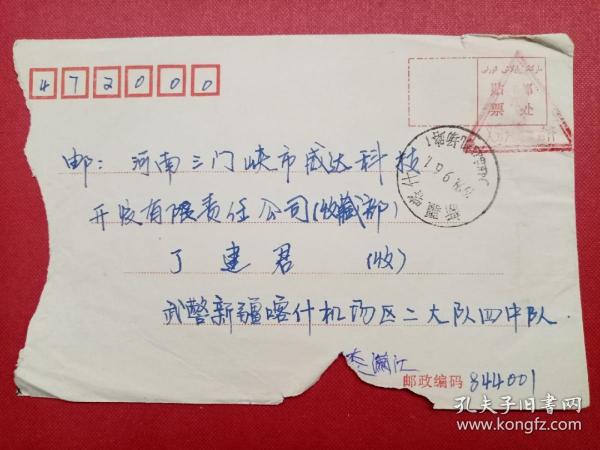 472000
贴 邮
票 处
邮：河南三门峡市威达科技
开发有限责任公司(收藏部)
丁建君 (收)
武警新疆喀什机场区二大队四中队
邮政编码 844001
孔夫子旧书网
www.kongfz.com